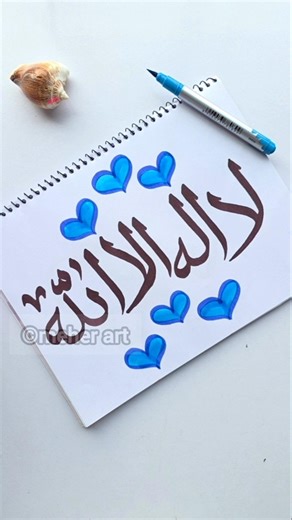 لا اله الا الله
©meher art